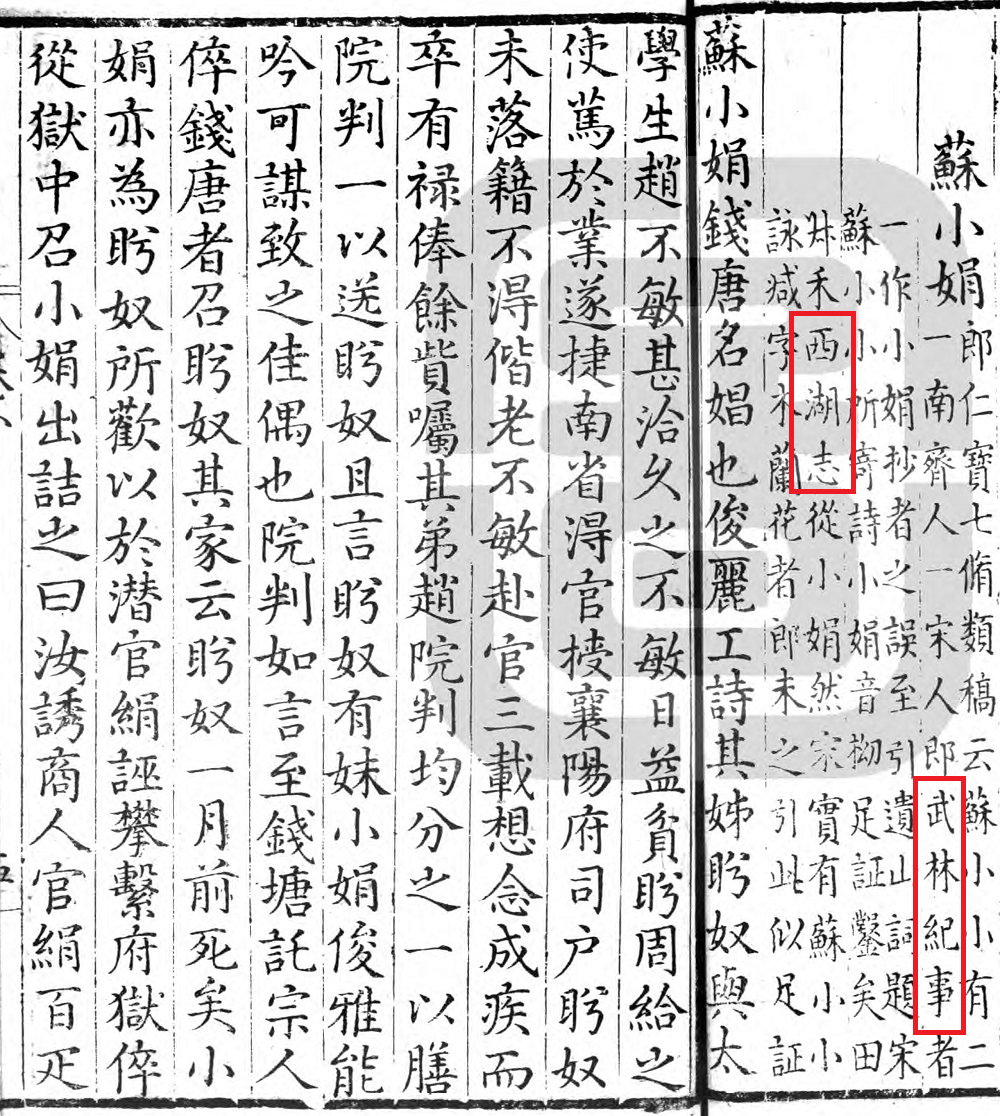 蘇小娟
郎仁寶七脩類稿云蘇小小有二
一南齊人一宋人即武林紀事者
一作小娟抄者之誤至引遺山詞題宋
蘇小小所寄詩小娟音拗足証鑿矣田
叔禾西湖志從小娟然宋實有蘇小小
詠减字木蘭花者郎未之引此似足証
蘇小娟錢唐名娼也俊麗工詩其姊盼奴與太
學生趙不敏甚洽久之不敏日益貧盼周給之
使篤於業遂捷南省淂官授襄陽府司户盼奴
未落籍不淂偕老不敏赴官三載想念成疾而
卒有禄俸餘貲囑其弟趙院判均分之一以膳
院判一以送盼奴且言盼奴有妹小娟俊雅能
吟可謀致之佳偶也院判如言至錢塘託宗人
倅錢唐者召盼奴其家云盼奴一月前死矣小
娟亦為盼奴所歡以於潜官絹誣攀繫府獄倅
從獄中召小娟出詰之曰汝誘商人官絹百疋